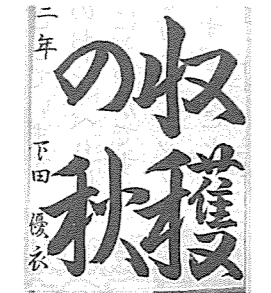 収穫
の秋
二年 下田 優衣